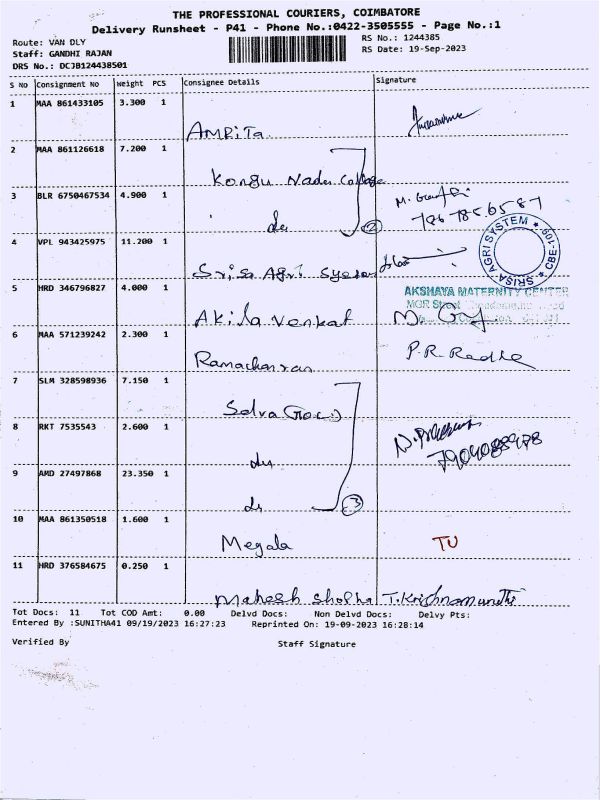 THE PROFESSIONAL COURIERS, COIMBATORE
Delivery Runsheet - P41 - Phone No.:0422-3505555 - Page No.:1
Route: VAN DLY
RS No.: 1244385
Staff: GANDHI RAJAN
RS Date: 19-Sep-2023
DRS No.: DCJB124438501
S No Consignment No Weight PCS Consignee Details Signature
1 MAA 861433105 3.300 1
AMRITA
2 MAA 861126618 7.200 1
Kongu Nadu College
3 BLR 6750467534 4.900 1
do 2
4 VPL 943425975 11.200 1
SRISA AGRI SYSTEM * CBE-109 *
Srisa Agri System
5 HRD 346796827 4.000 1
AKSHAYA MATERNITY CENTER
Akila Venkat
6 MAA 571239242 2.300 1
P.R. Radha
Ramachanran
7 SLM 328598936 7.150 1
Selva
8 RKT 7535543 2.600 1
do
7904088978
9 AMD 27497868 23.350 1
do 3
10 MAA 861350518 1.600 1
Megala
TU
11 HRD 376584675 0.250 1
Mahesh Shobha T. Krishnamurthi
Tot Docs: 11 Tot COD Amt: 0.00 Delvd Docs: Non Delvd Docs: Delvy Pts:
Entered By :SUNITHA41 09/19/2023 16:27:23 Reprinted On: 19-09-2023 16:28:14
Verified By Staff Signature